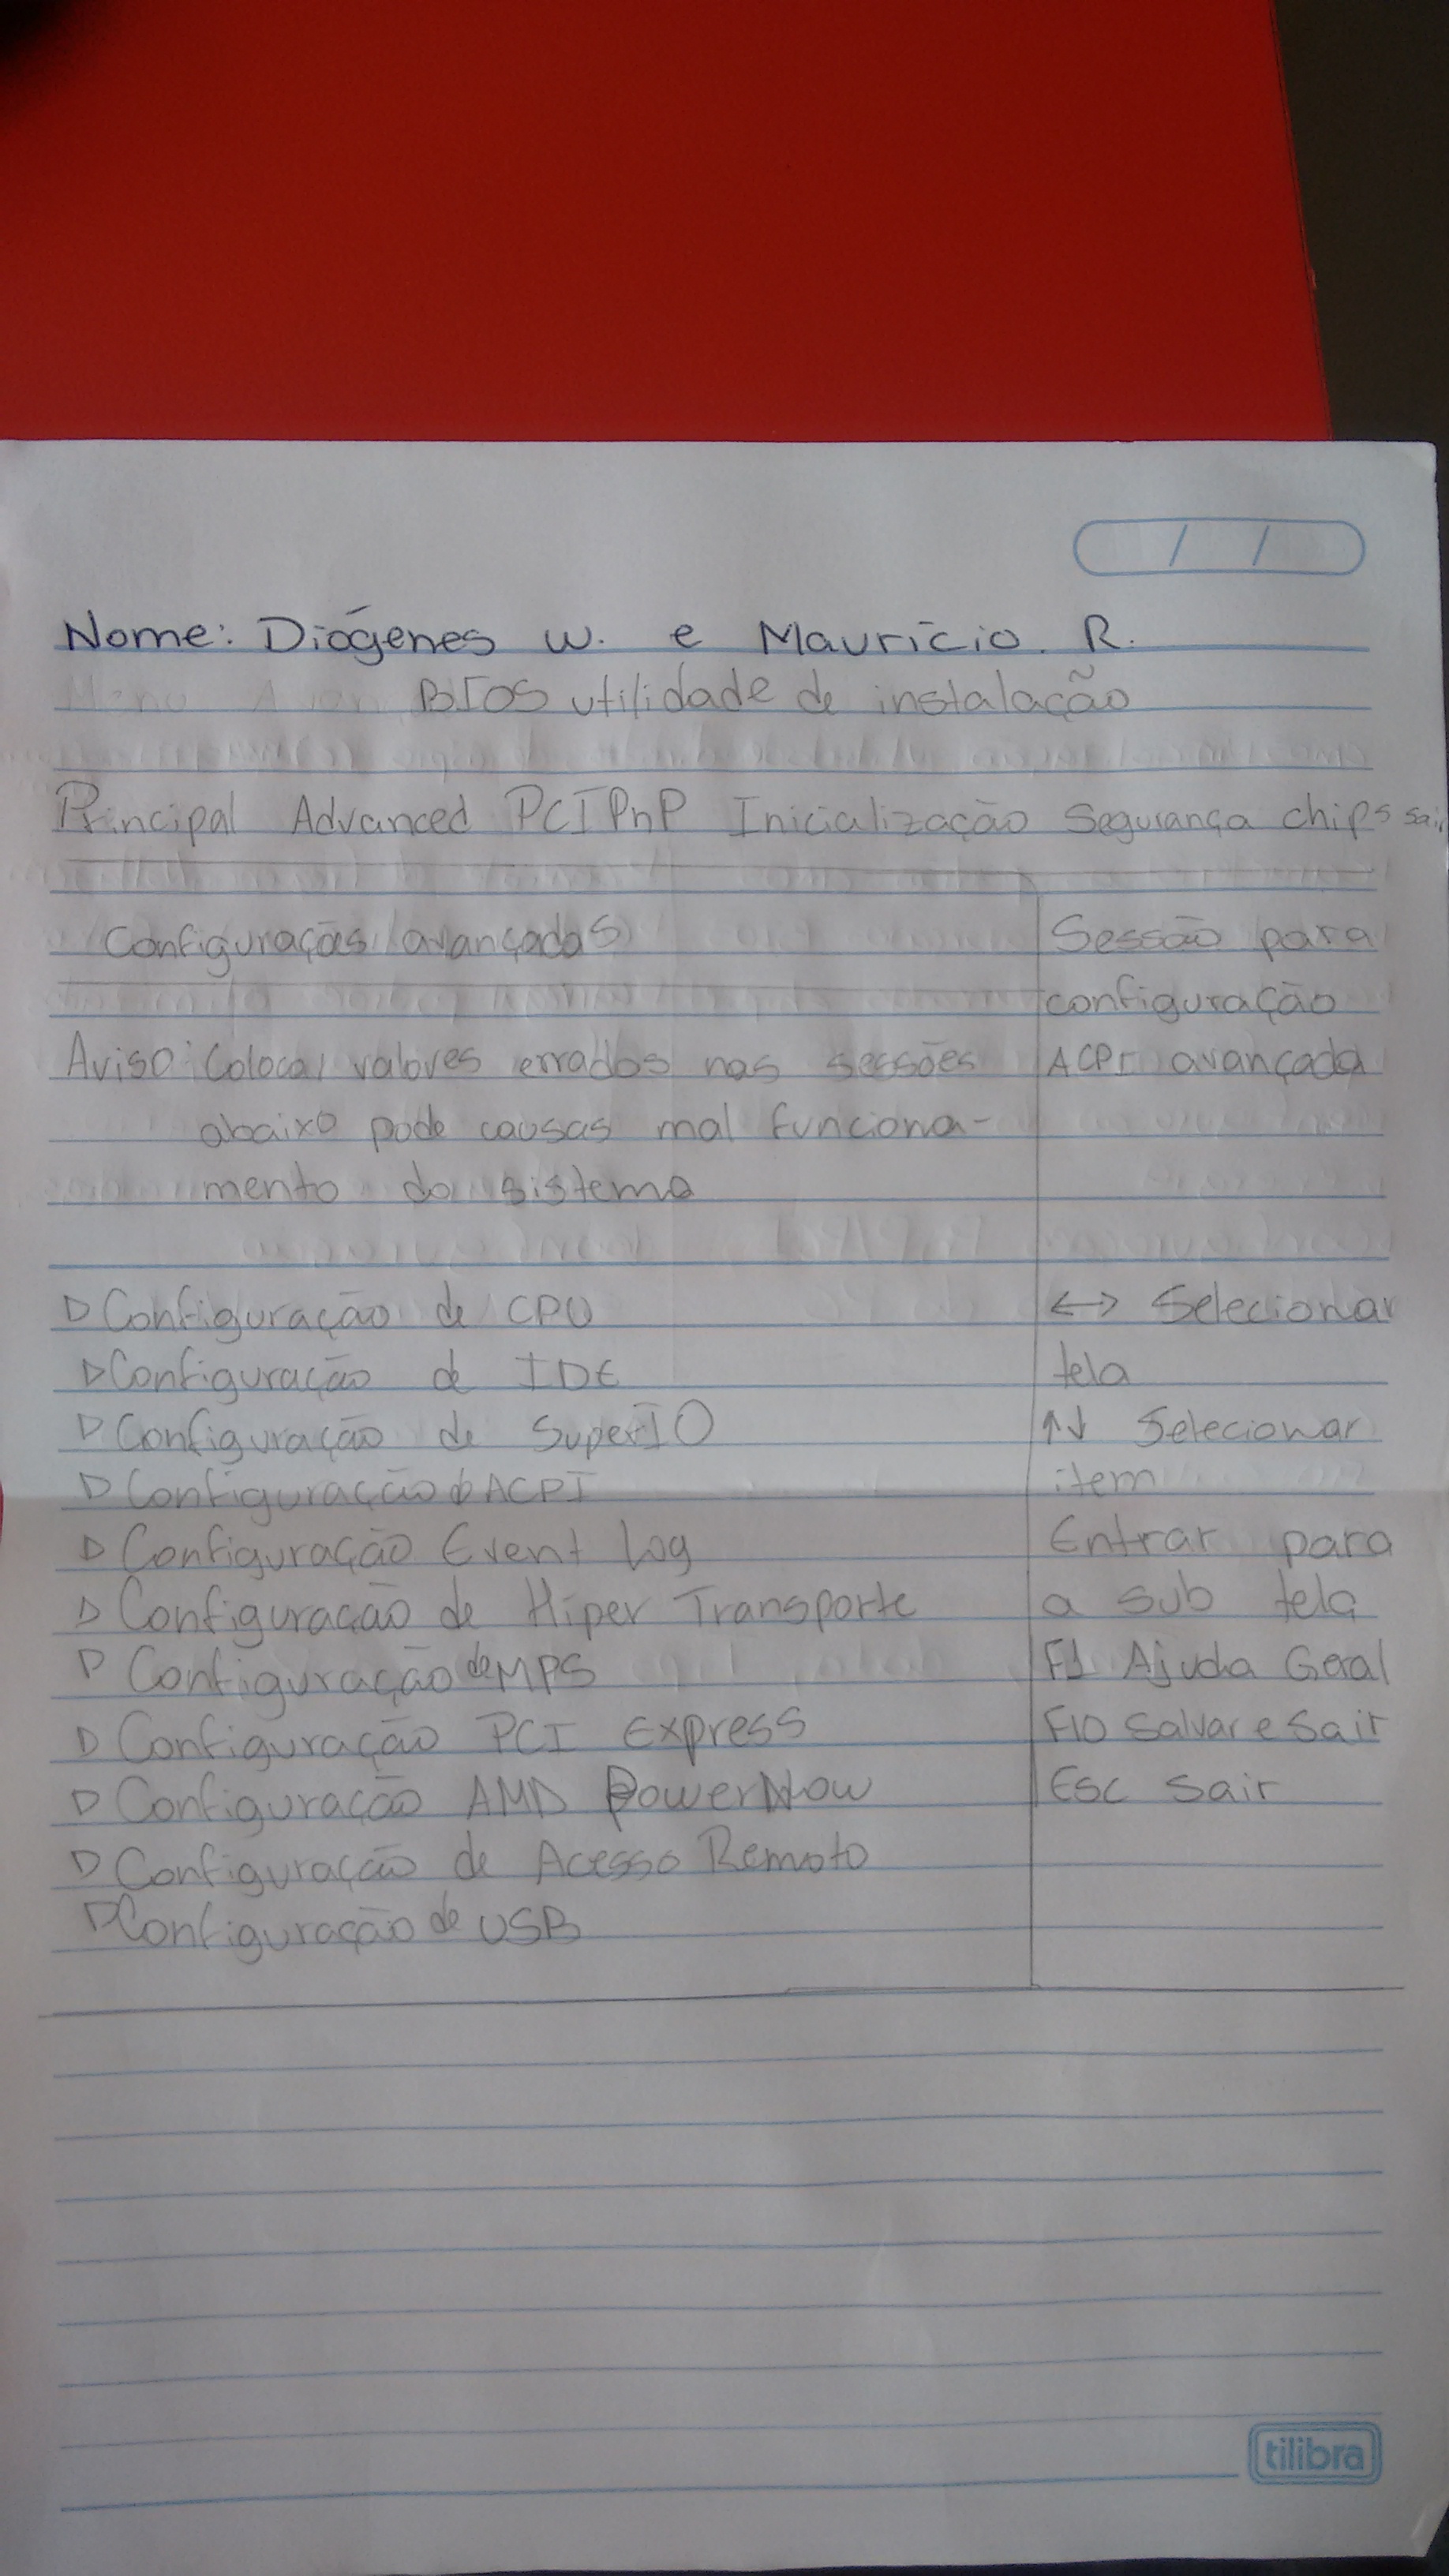 / /
Nome: Diógenes W. e Maurício. R.
BIOS utilidade de instalação
Principal Advanced PCIPnP Inicialização Segurança chips sair
Configurações avançadas
Aviso: Colocar valores errados nas sessões
abaixo pode causas mal funciona-
mento do sistema
▷ Configuração de CPU
▷ Configuração de IDE
▷ Configuração de SuperIO
▷ Configuração d ACPI
▷ Configuração Event Log
▷ Configuração de Hiper Transporte
▷ Configuração de MPS
▷ Configuração PCI Express
▷ Configuração AMD PowerNow
▷ Configuração de Acesso Remoto
▷ Configuração de USB
Sessão para
configuração
ACPI avançada
↔ Selecionar
tela
↑↓ Selecionar
item
Entrar para
a sub tela
F1 Ajuda Geral
F10 Salvar e Sair
Esc Sair
tilibra